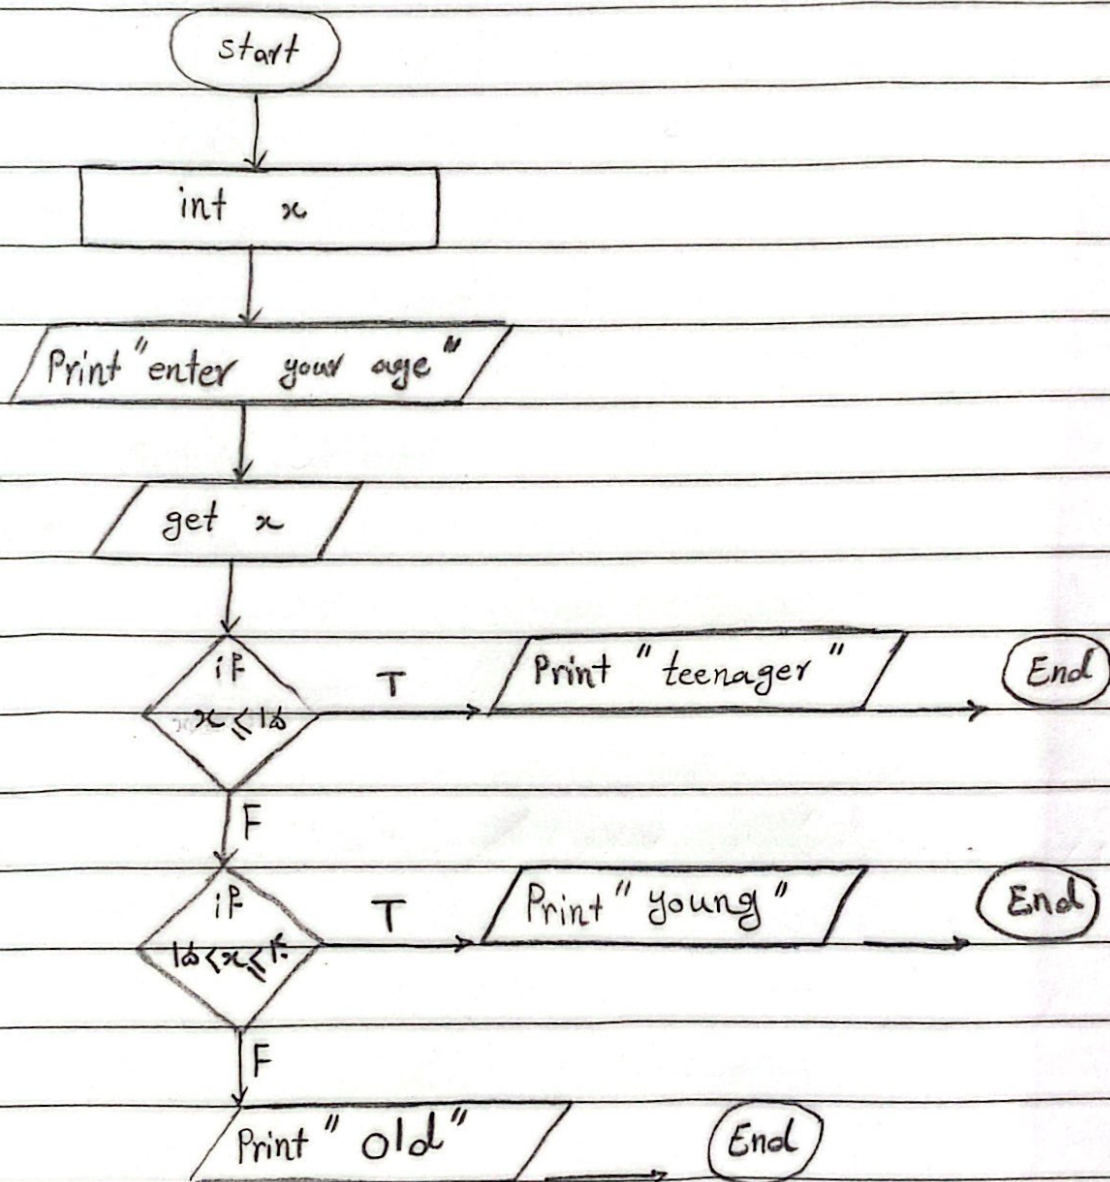 start
int x
Print "enter your age"
get x
if
x ≤ ۱۵
T
Print "teenager"
End
F
if
۱۵ < x ≤ ۴۰
T
Print "young"
End
F
Print "old"
End